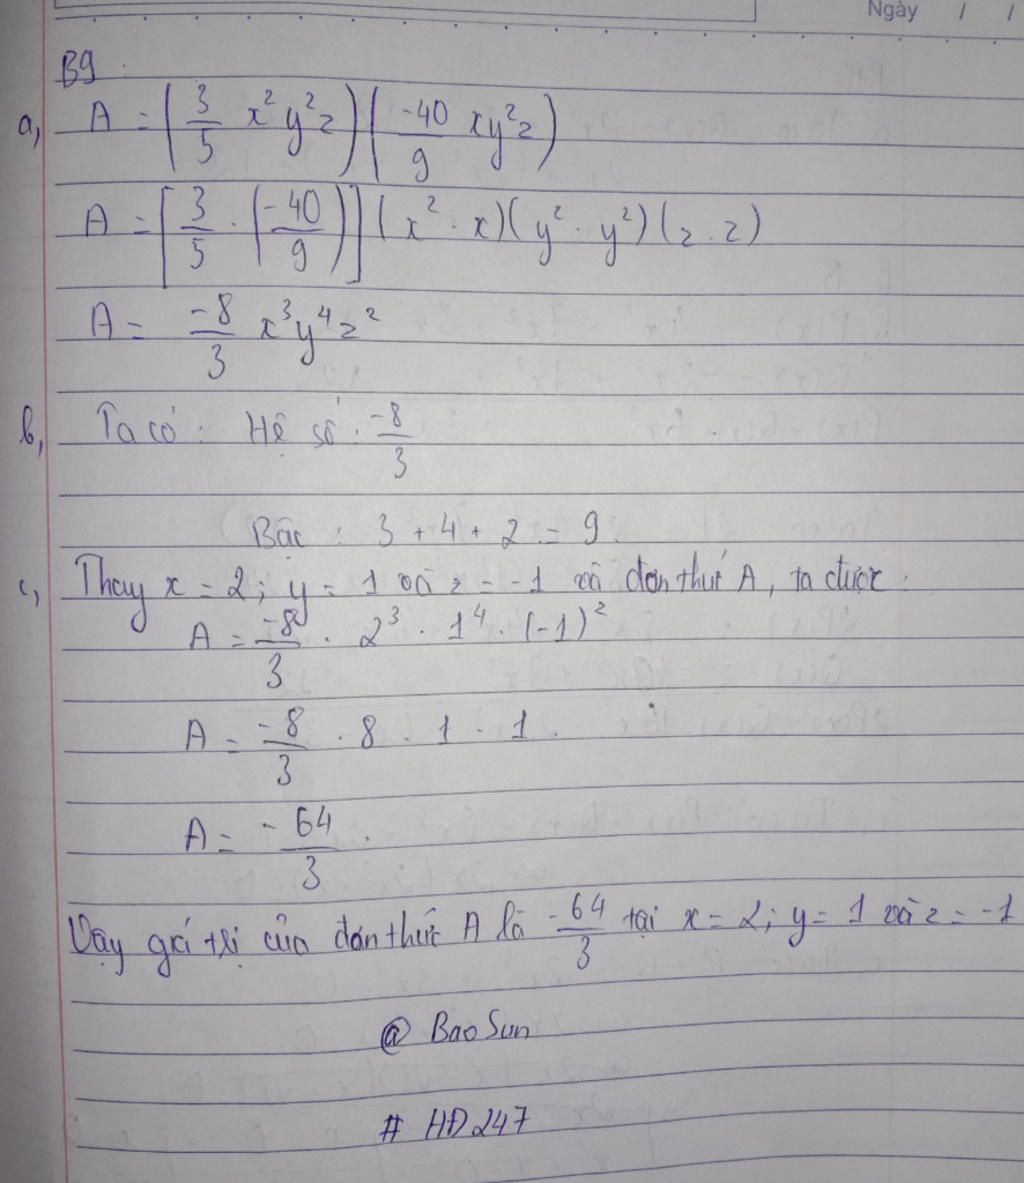 Ngày / /
B9.
a, A = (3/5 x²y²z)(-40/9 xy²z)
A = [3/5 . (-40/9)](x² . x)(y² . y²)(z . z)
A = -8/3 x³y⁴z²
b, Ta có : Hệ số : -8/3
Bậc : 3 + 4 + 2 = 9.
c, Thay x = 2 ; y = 1 và z = -1 và đơn thức A, ta được :
A = -8/3 . 2³ . 1⁴ . (-1)²
A = -8/3 . 8 . 1 . 1.
A = -64/3.
Vậy giá trị của đơn thức A là -64/3 tại x = 2 ; y = 1 và z = -1
@ Bao Sun
# HĐ247